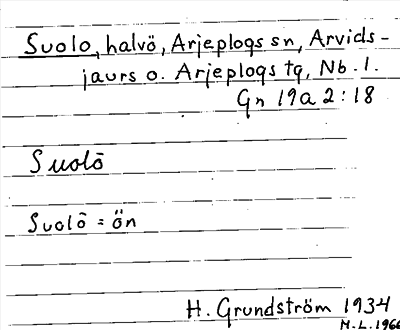 Suolo, halvö, Arjeplogs sn, Arvids-
jaurs o. Arjeplogs tg, Nb. l.
Gn 19a 2:18
Suolō
Suolō = ön
H. Grundström 1934
H.L. 1960